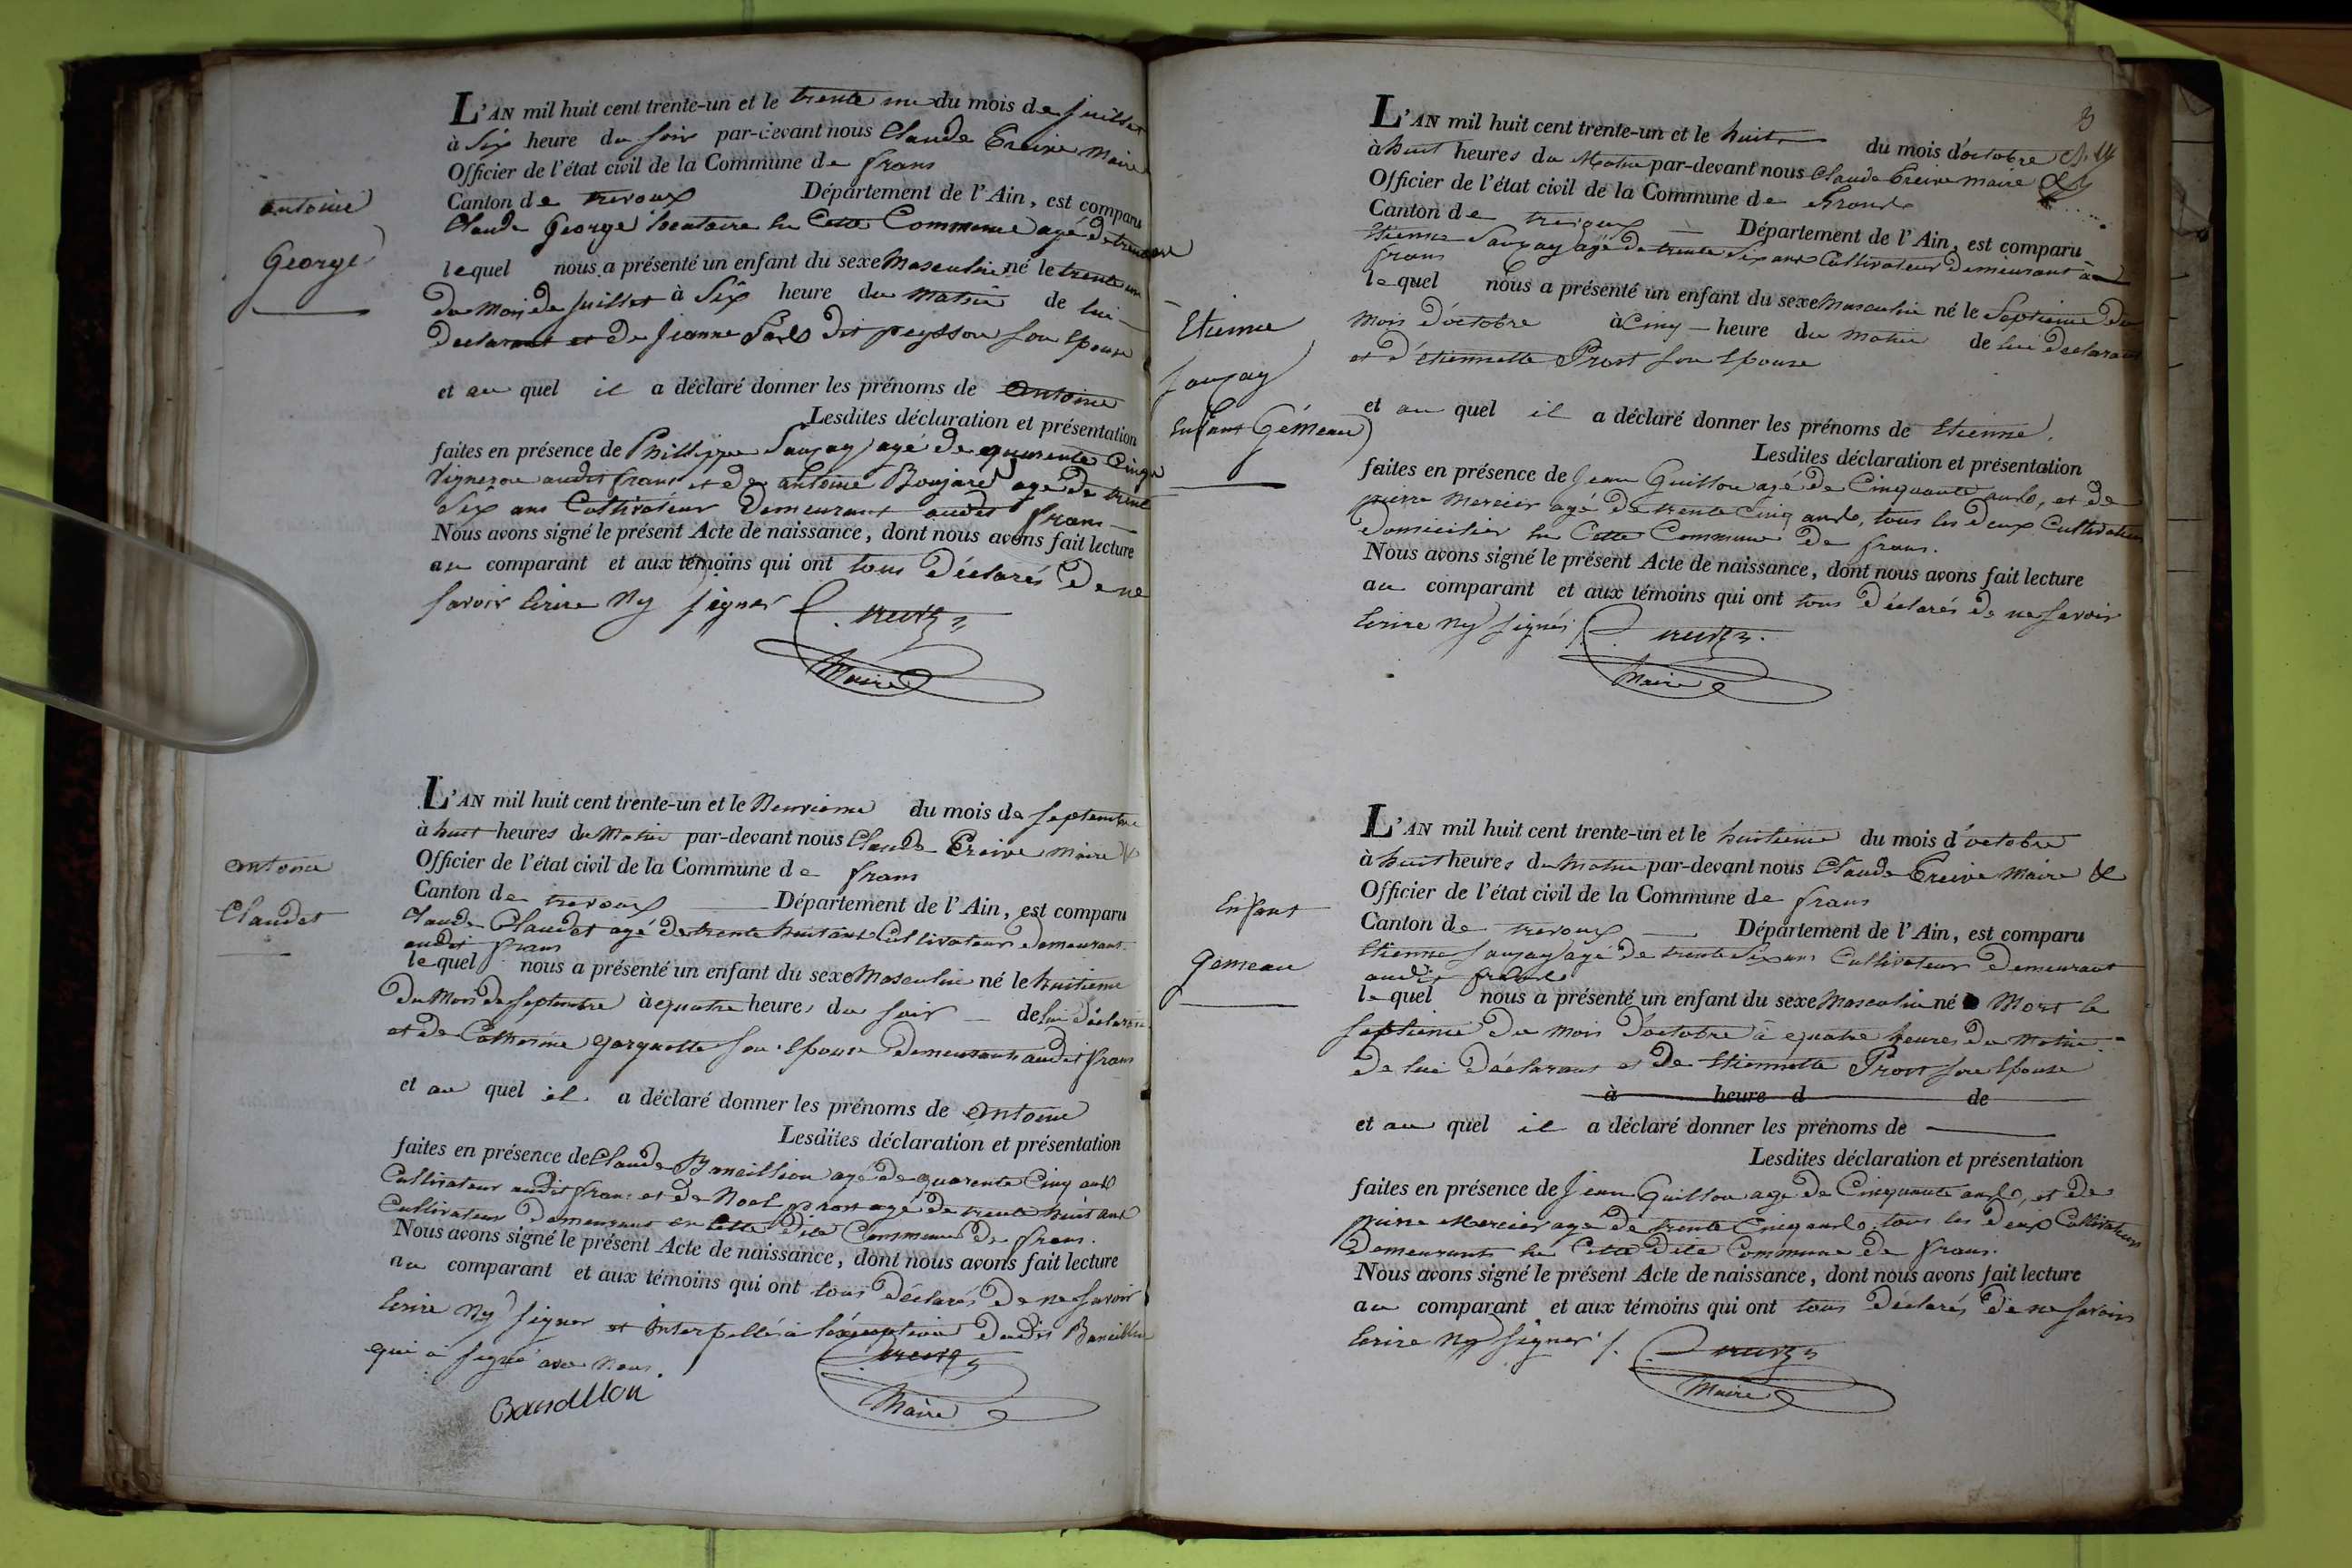 antoine
George
L'AN mil huit cent trente-un et le trente un du mois de juillet
à Six heure du soir par-devant nous Claude Creive Maire
Officier de l'état civil de la Commune de frans
Canton de trevoux Département de l'Ain, est comparu
Claude George locataire en Cette Commune agé de
lequel nous a présenté un enfant du sexe Masculin né le trente un
du Mois de Juillet à Six heure du matin de lui
Declarant et de Jeanne dit peysson son Epouse
et au quel il a déclaré donner les prénoms de antoine
Lesdites déclaration et présentation
faites en présence de Philippe Sauzay agé de quarente Cinq
Vigneron audit frans et de antoine Boujard agé de trente
Six ans Cultivateur Demeurant audit frans
Nous avons signé le présent Acte de naissance, dont nous avons fait lecture
au comparant et aux témoins qui ont tous Déclarés De ne
savoir Ecrire Ny signer
Maire
antoine
Claudet
L'AN mil huit cent trente-un et le Neuvieme du mois de septembre
à huit heures du Matin par-devant nous Claude Creive Maire
Officier de l'état civil de la Commune de frans
Canton de trevoux Département de l'Ain, est comparu
Claude Claudet agé de trente huit ans Cultivateur demeurant
audit frans
lequel nous a présenté un enfant du sexe Masculin né le huitieme
Du Mois de septembre à quatre heures du soir de lui déclarant
et de Catherine garguette son Epouse Demeurants audit frans
et au quel il a déclaré donner les prénoms de antoine
Lesdites déclaration et présentation
faites en présence de Claude Bancillion agé de quarente Cinq ans
Cultivateur audit frans et de Noel prost agé de trente huit ans
Cultivateur Demeurant en Cette dite Commune de frans.
Nous avons signé le présent Acte de naissance, dont nous avons fait lecture
au comparant et aux témoins qui ont tous Déclarés De ne savoir
Ecrire Ny signer et Interpellé à l'exception dudit Bancillion
qui a signé avec Nous.
Maire
3
Etienne
sauzay
Enfant Gémeau
L'AN mil huit cent trente-un et le huit du mois d'octobre
à huit heures du Matin par-devant nous Claude Creive maire
Officier de l'état civil de la Commune de
Canton de trevoux Département de l'Ain, est comparu
Etienne Sauzay agé de trente Six ans Cultivateur demeurant à
frans
lequel nous a présenté un enfant du sexe Masculin né le Septieme du
Mois d'octobre à Cinq heure du matin de lui declarant
et d'etiennette Prost son Epouse
et au quel il a déclaré donner les prénoms de Etienne.
Lesdites déclaration et présentation
faites en présence de Jean Guillon agé de Cinquante ans, et de
pierre Mercier agé de trente Cinq ans, tous les deux Cultivateurs
Domicilier en Cette Commune de frans.
Nous avons signé le présent Acte de naissance, dont nous avons fait lecture
au comparant et aux témoins qui ont tous Déclarés De ne savoir
Ecrire Ny signés
Maire
Enfant
Gemeau
L'AN mil huit cent trente-un et le huitieme du mois d'octobre
à huit heures du Matin par-devant nous Claude Creive Maire &
Officier de l'état civil de la Commune de frans
Canton de trevoux Département de l'Ain, est comparu
Etienne Sauzay agé de trente Six ans Cultivateur Demeurant
audit frans
lequel nous a présenté un enfant du sexe Masculin né Mort le
septieme du mois d'octobre à quatre heures du Matin
de lui Déclarant et de Etiennette Prost son Epouse
à heure d de
et au quel il a déclaré donner les prénoms de
Lesdites déclaration et présentation
faites en présence de Jean Guillon agé de Cinquante ans, et de
pierre Mercier agé de trente Cinq ans tous les deux Cultivateurs
Demeurants en Cette Dite Commune de frans.
Nous avons signé le présent Acte de naissance, dont nous avons fait lecture
au comparant et aux témoins qui ont tous Déclarés De ne Savoir
Ecrire Ny Signer
Maire